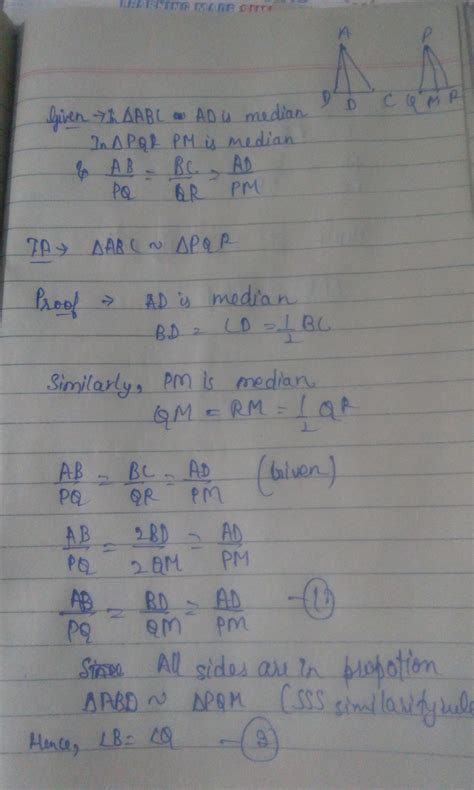 A P
B D C Q M R
Given → In ΔABC AD is median
In ΔPQR PM is median
& AB/PQ = BC/QR = AD/PM
T.P → ΔABC ~ ΔPQR
Proof → AD is median
BD = CD = 1/2 BC
Similarly, PM is median
QM = RM = 1/2 QR
AB/PQ = BC/QR = AD/PM (Given)
AB/PQ = 2BD/2QM = AD/PM
AB/PQ = BD/QM = AD/PM —(1)
Since All sides are in propotion
ΔABD ~ ΔPQM (SSS similarity rule
Hence, ∠B = ∠Q —(2)